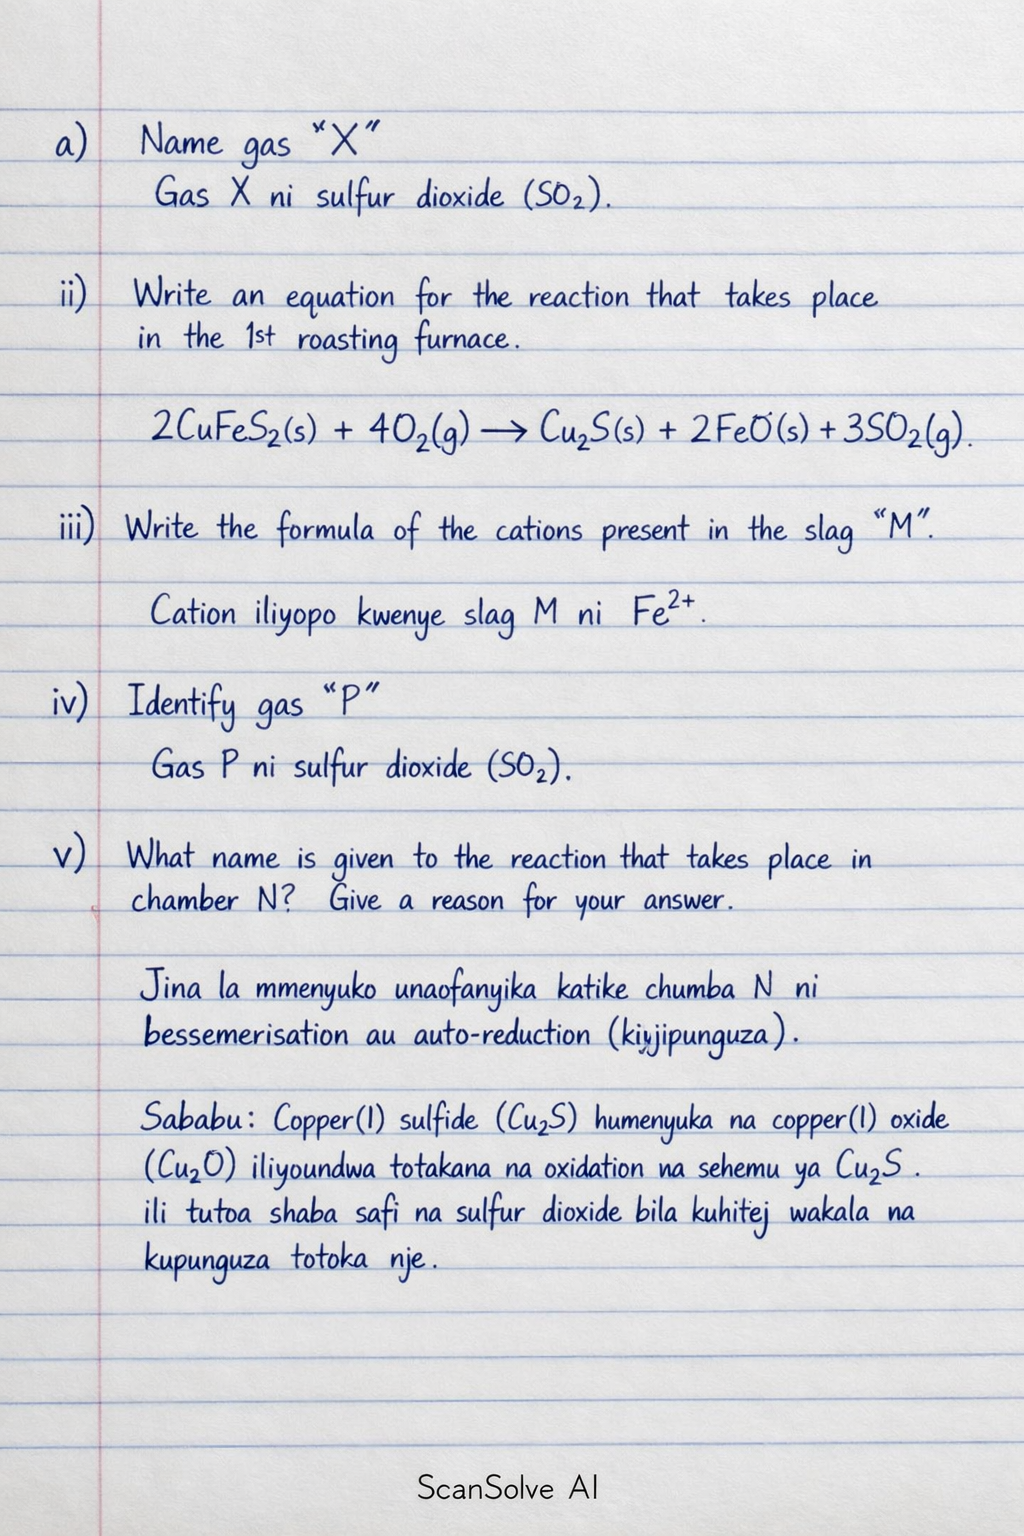 a) Name gas "X"
Gas X ni sulfur dioxide (SO₂).
ii) Write an equation for the reaction that takes place
in the 1st roasting furnace.
2CuFeS₂(s) + 4O₂(g) → Cu₂S(s) + 2FeO(s) + 3SO₂(g).
iii) Write the formula of the cations present in the slag "M".
Cation iliyopo kwenye slag M ni Fe²⁺.
iv) Identify gas "P"
Gas P ni sulfur dioxide (SO₂).
v) What name is given to the reaction that takes place in
chamber N? Give a reason for your answer.
Jina la mmenyuko unaofanyika katike chumba N ni
bessemerisation au auto-reduction ( ).
Sababu: Copper(I) sulfide (Cu₂S) humenyuka na copper(I) oxide
(Cu₂O) iliyoundwa totakana na oxidation na sehemu ya Cu₂S.
ili tutoa shaba safi na sulfur dioxide bila kuhitej wakala na
kupunguza totoka nje.
ScanSolve AI